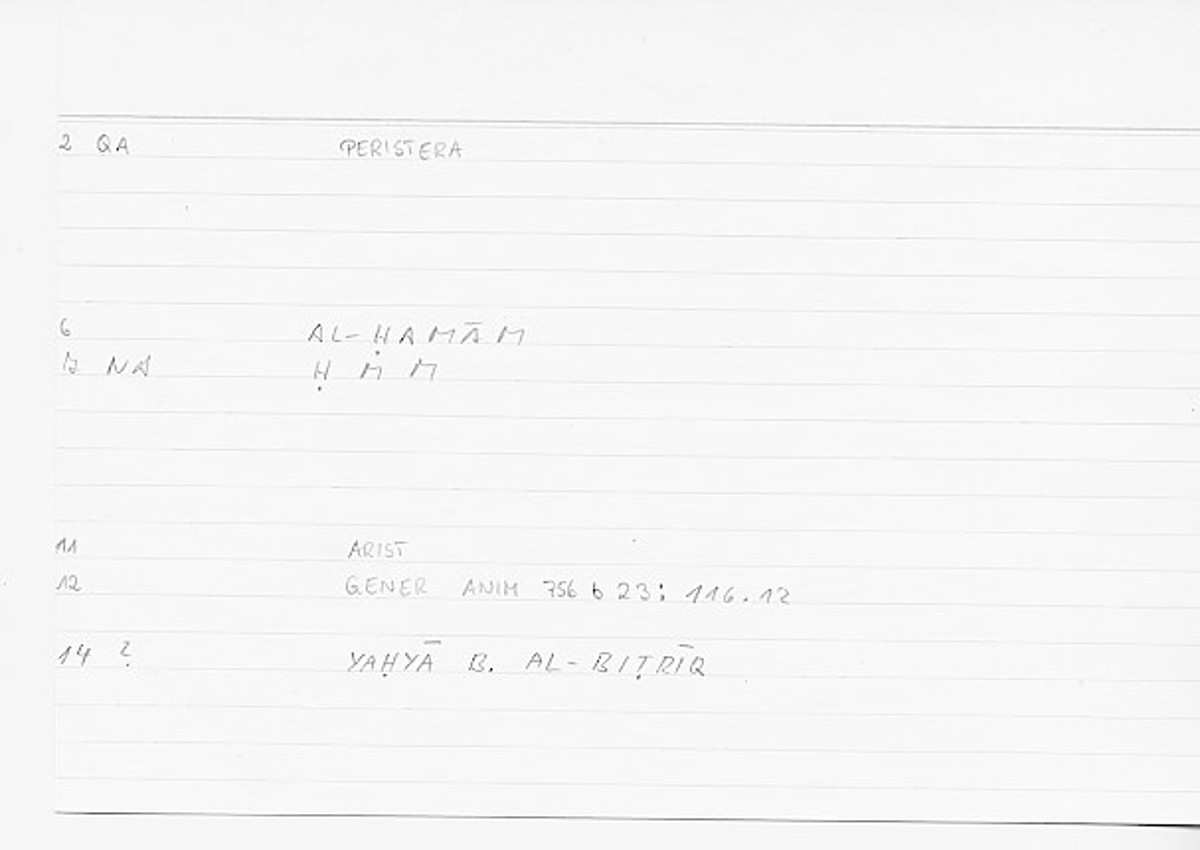 2 QA PERISTERA
6 AL-ḤAMĀM
NA Ḥ M M
11 ARIST
12 GENER ANIM 756 b 23: 116.12
14 ? YAḤYĀ B. AL-BIṬRĪQ